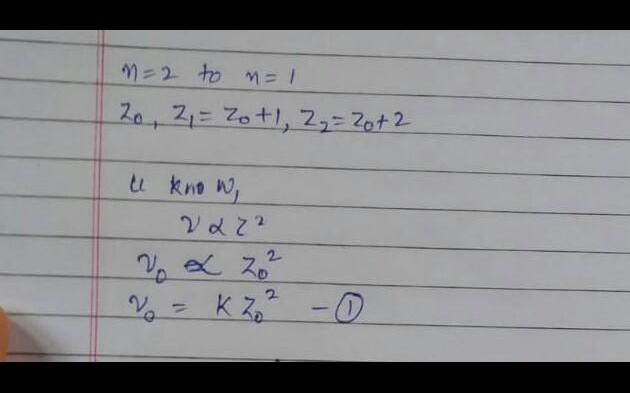 n=2 to n=1
Z₀, Z₁=Z₀+1, Z₂=Z₀+2
U know,
ν ∝ Z²
ν₀ ∝ Z₀²
ν₀ = KZ₀² -①